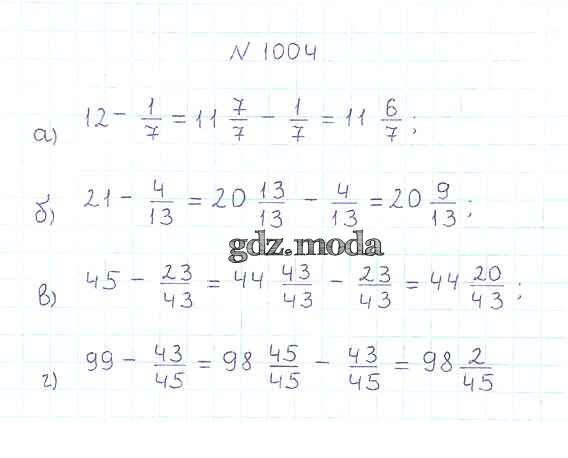 N 1004
а) 12 - 1/7 = 11 7/7 - 1/7 = 11 6/7;
б) 21 - 4/13 = 20 13/13 - 4/13 = 20 9/13;
gdz.moda
в) 45 - 23/43 = 44 43/43 - 23/43 = 44 20/43;
г) 99 - 43/45 = 98 45/45 - 43/45 = 98 2/45